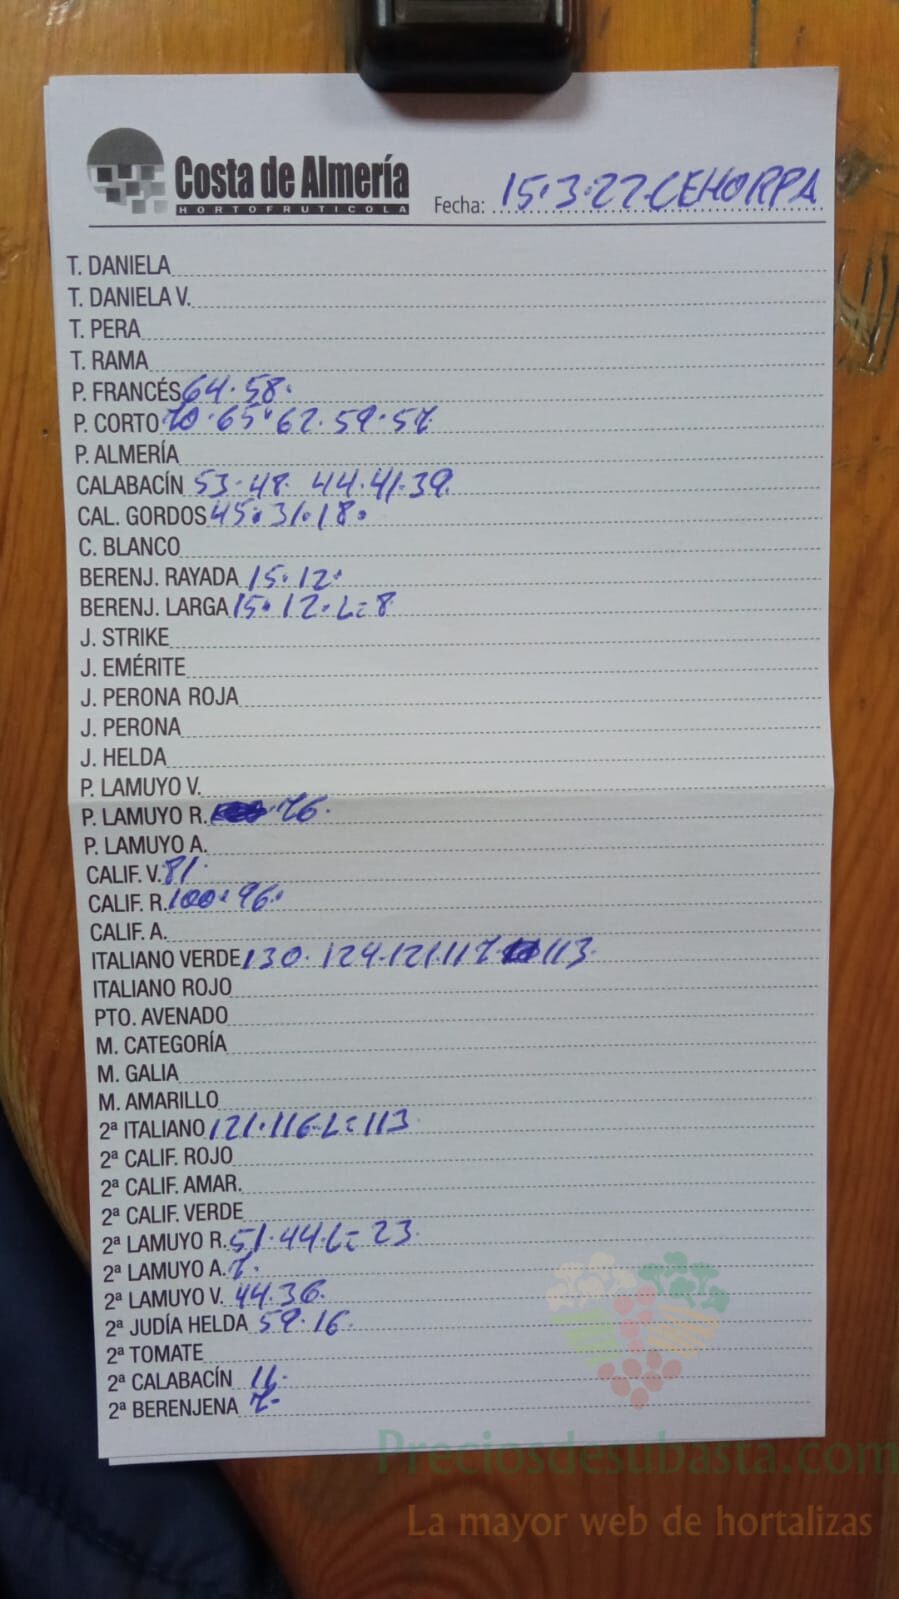 Costa de Almería
HORTOFRUTICOLA
Fecha: 15.3.22.CEHORPA
T. DANIELA
T. DANIELA V.
T. PERA
T. RAMA
P. FRANCÉS 64.58.
P. CORTO 70.65.62.59.57
P. ALMERÍA
CALABACÍN 53.48. 44.41.39.
CAL. GORDOS 45.31.18.
C. BLANCO
BERENJ. RAYADA 15.12.
BERENJ. LARGA 15.12.L=8
J. STRIKE
J. EMÉRITE
J. PERONA ROJA
J. PERONA
J. HELDA
P. LAMUYO V.
P. LAMUYO R. 76.
P. LAMUYO A.
CALIF. V. 81.
CALIF. R. 100.96.
CALIF. A.
ITALIANO VERDE 130.124.121.117 113.
ITALIANO ROJO
PTO. AVENADO
M. CATEGORÍA
M. GALIA
M. AMARILLO
2ª ITALIANO 121.116.L=113
2ª CALIF. ROJO
2ª CALIF. AMAR.
2ª CALIF. VERDE
2ª LAMUYO R. 51.44.L=23.
2ª LAMUYO A. 7.
2ª LAMUYO V. 44.36.
2ª JUDÍA HELDA 59.16.
2ª TOMATE
2ª CALABACÍN 11.
2ª BERENJENA 7-
Preciosdesubasta.com
La mayor web de hortalizas